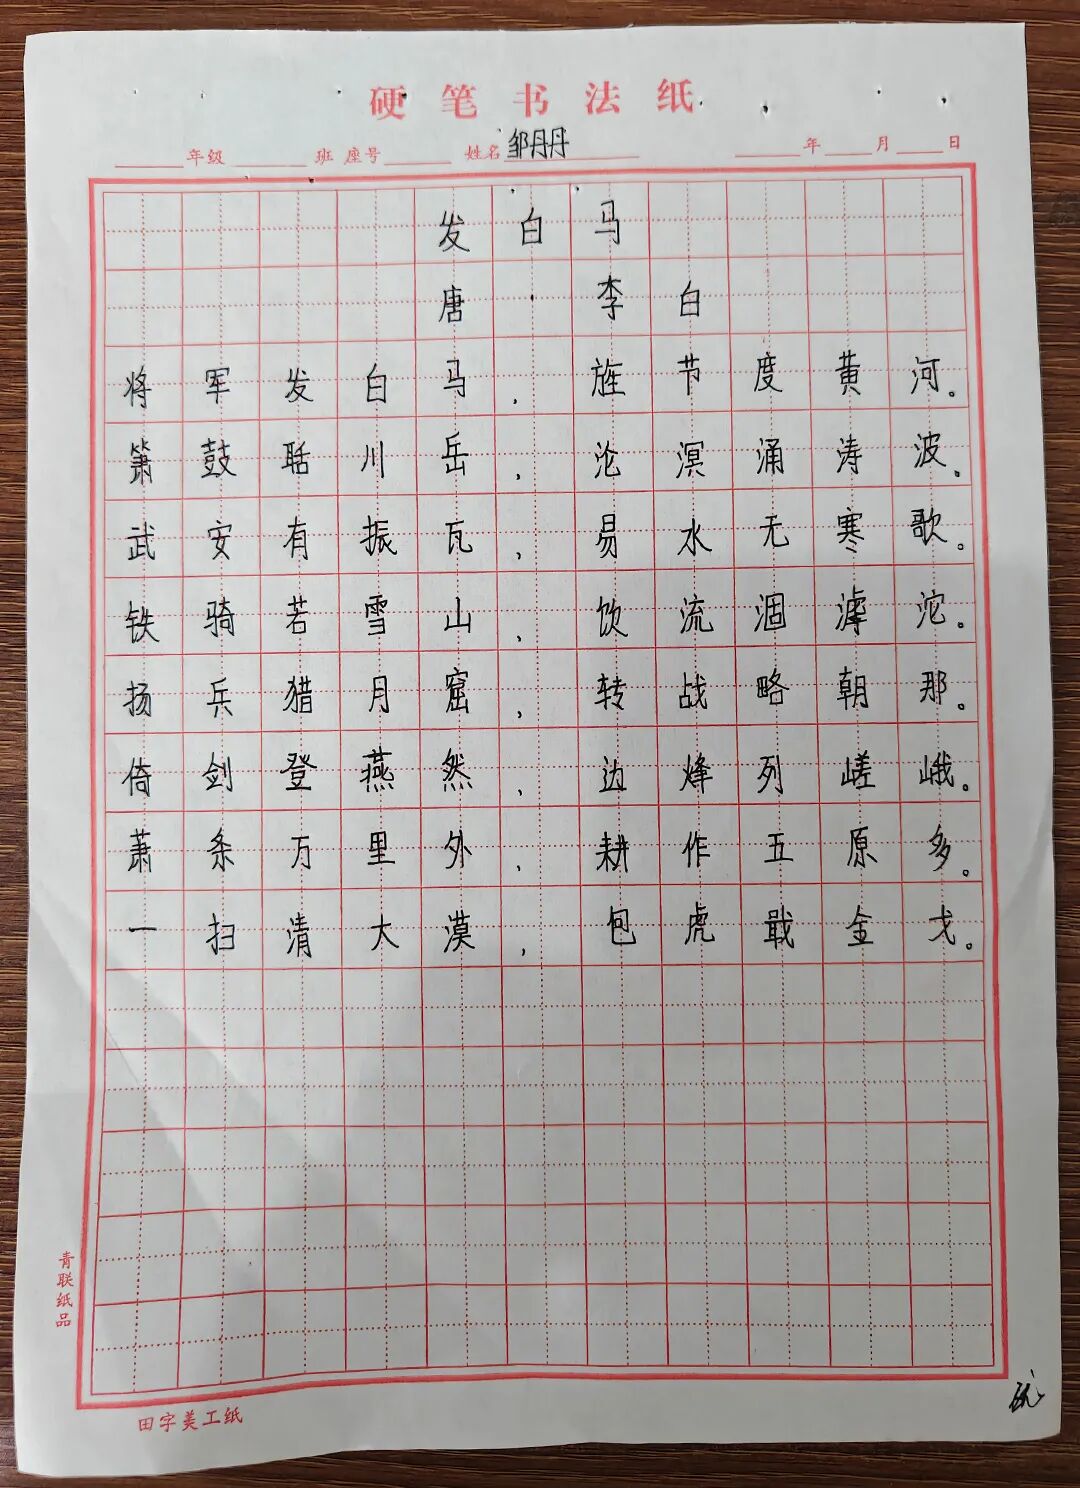 硬笔书法纸
年级 班 座号 姓名 邹丹丹 年 月 日
发白马
唐·李白
将军发白马，旌节度黄河。
箫鼓聒川岳，沧溟涌涛波。
武安有振瓦，易水无寒歌。
铁骑若雪山，饮流涸滹沱。
扬兵猎月窟，转战略朝那。
倚剑登燕然，边烽列嵯峨。
萧条万里外，耕作五原多。
一扫清大漠，包虎戢金戈。
青联纸品
田字美工纸